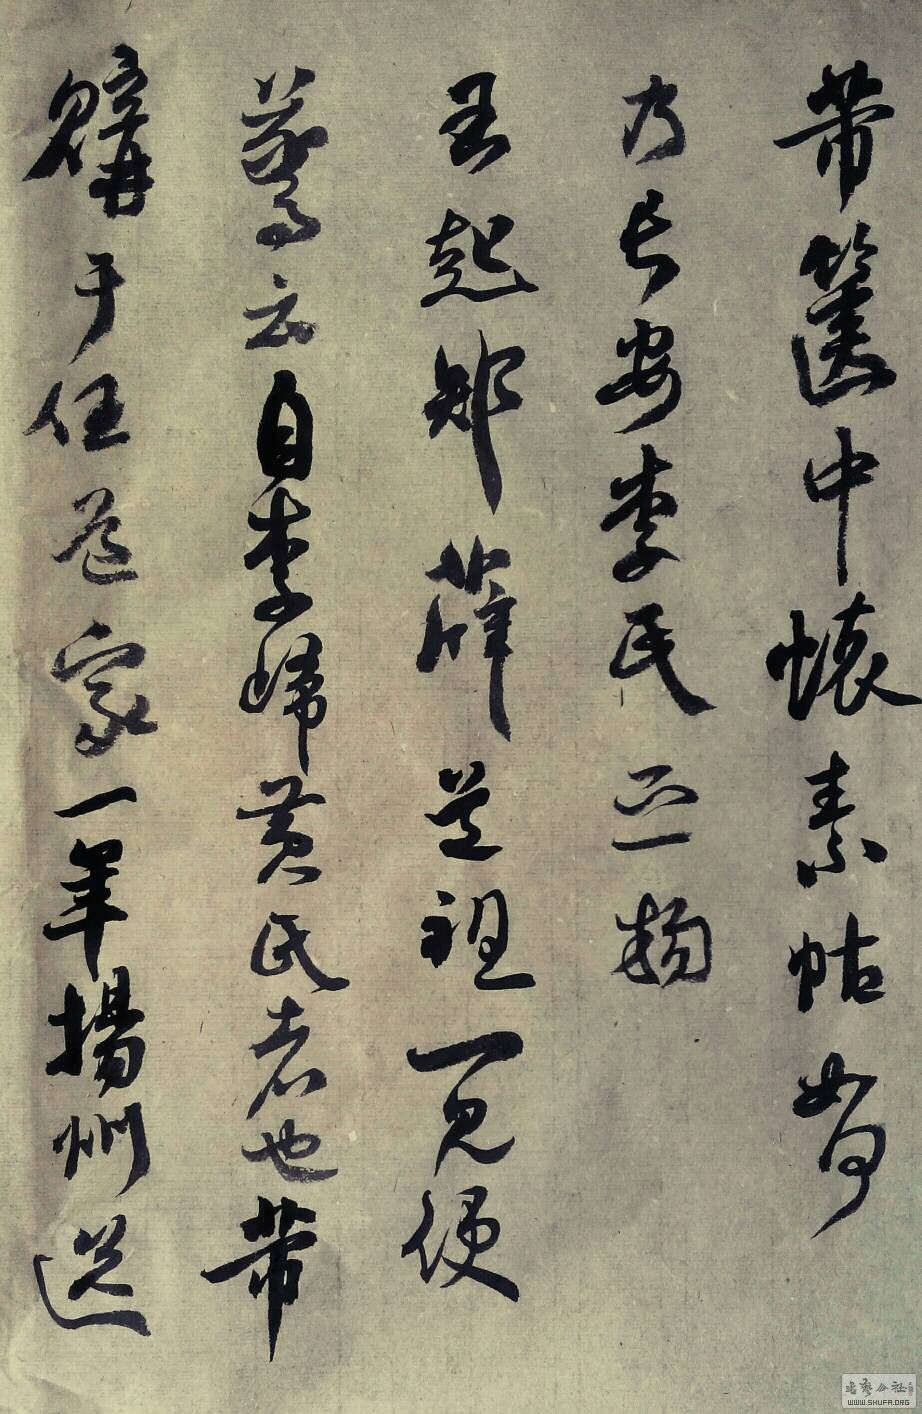 芾篋中懷素帖如何
乃長安李氏之物
王起部薛道祖一見便
驚云自李歸黃氏者也芾
購于任道家一年揚州送
WWW.SHUFA.ORG